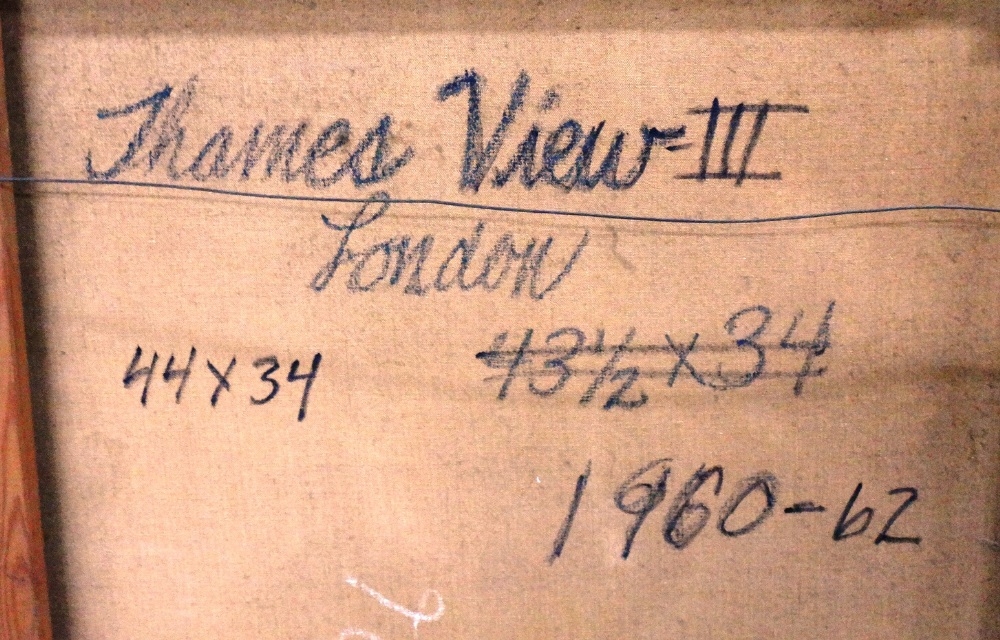 Thames View-III
London
44x34 43½x34
1960-62